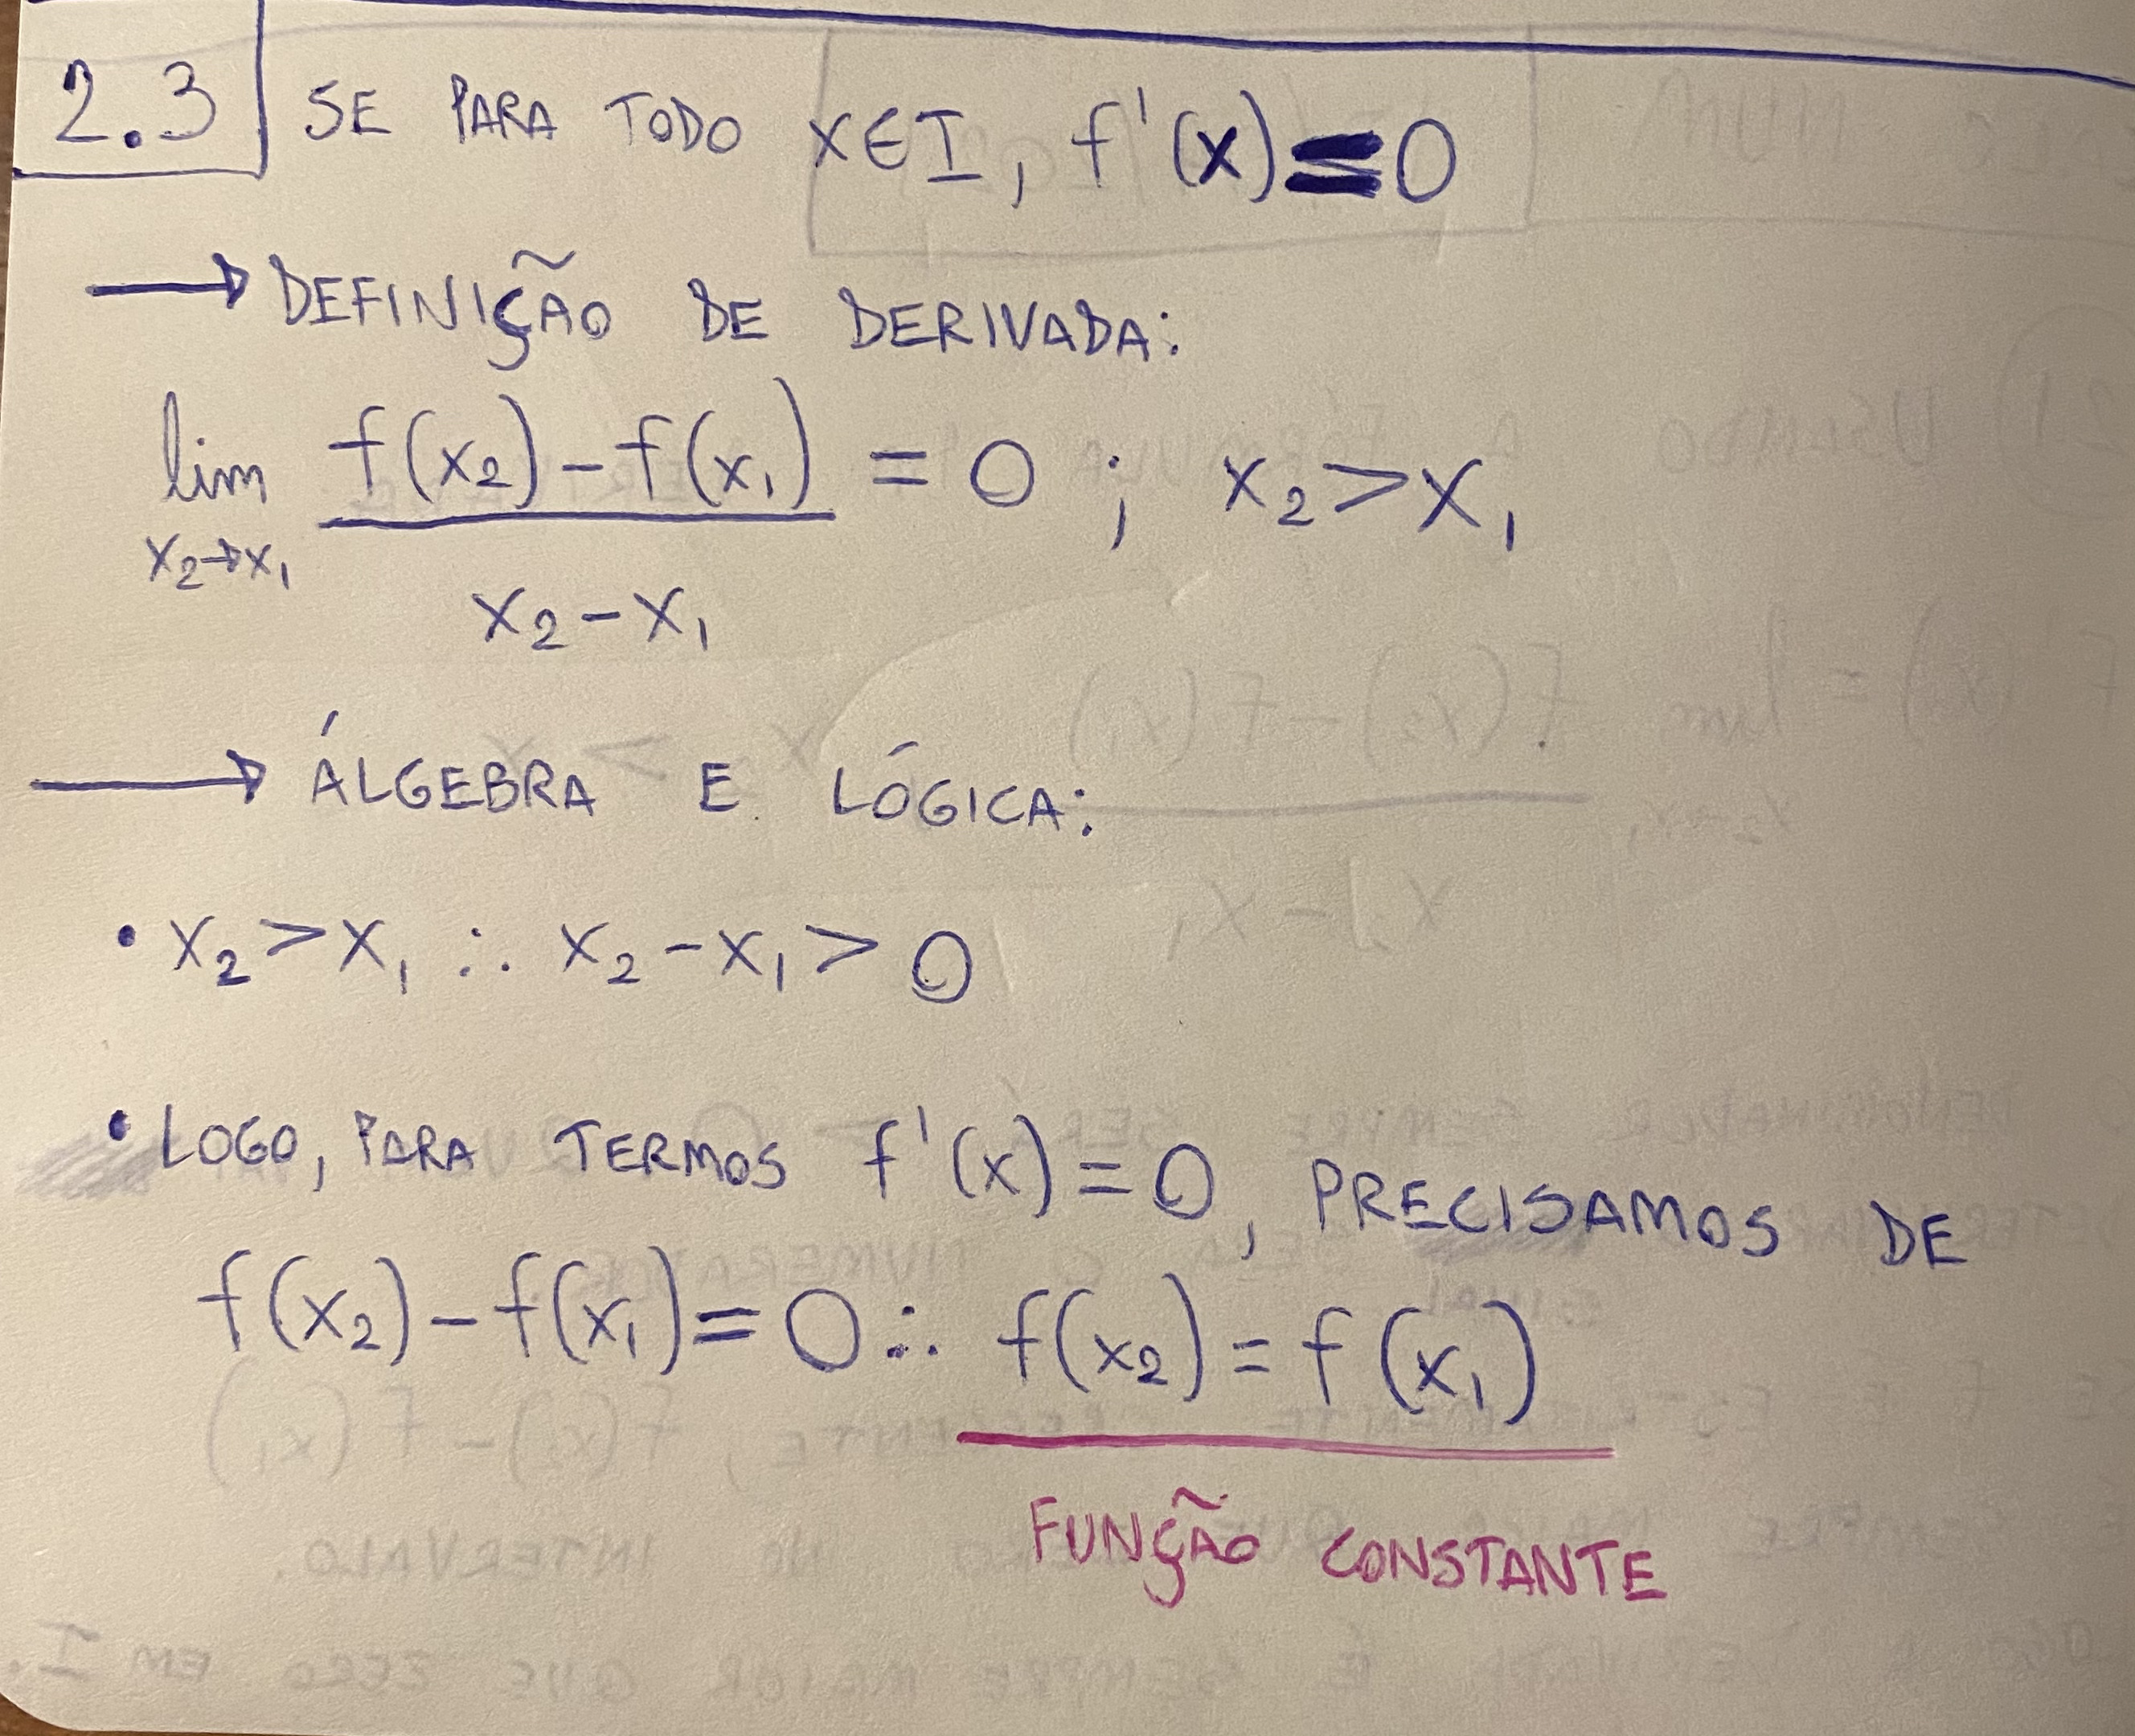 2.3 SE PARA TODO x∈I, f'(x)=0
→ DEFINIÇÃO DE DERIVADA:
lim f(x₂)-f(x₁) = 0 ; x₂>x₁
x₂→x₁
x₂-x₁
→ ÁLGEBRA E LÓGICA:
• x₂>x₁ ∴ x₂-x₁>0
• LOGO, PARA TERMOS f'(x)=0, PRECISAMOS DE
f(x₂)-f(x₁)=0 ∴ f(x₂)=f(x₁)
FUNÇÃO CONSTANTE